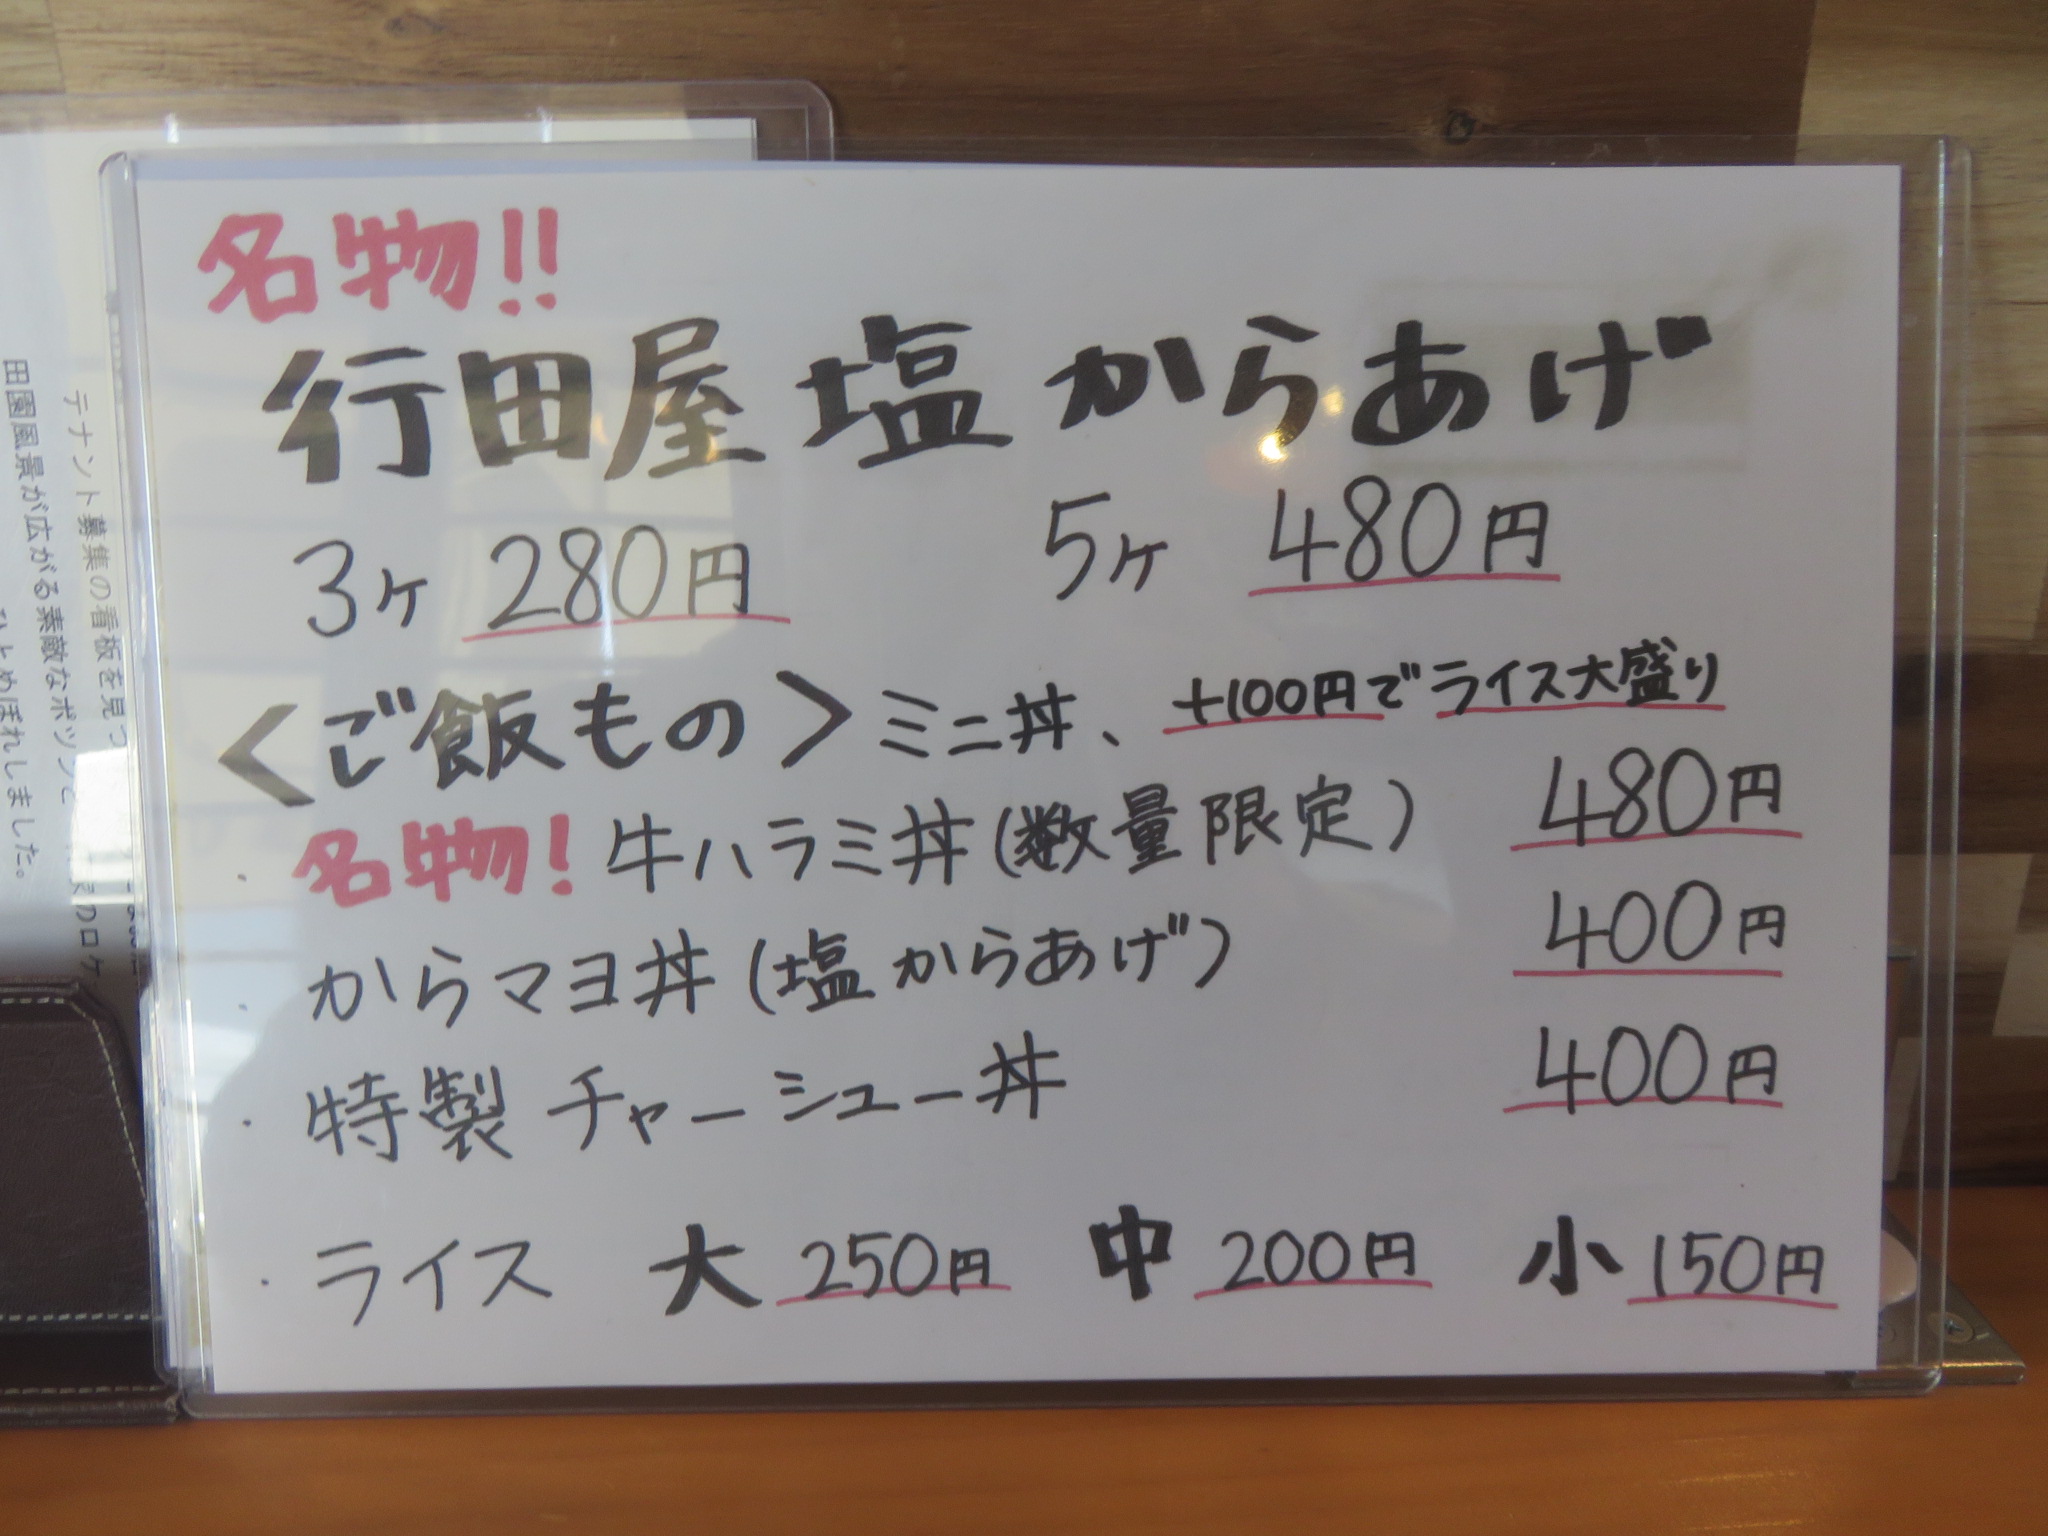 名物!!
行田屋 塩からあげ
3ヶ 280円 5ヶ 480円
<ご飯もの> ミニ丼、+100円でライス大盛り
・名物! 牛ハラミ丼(数量限定) 480円
・からマヨ丼(塩からあげ) 400円
・特製 チャーシュー丼 400円
・ライス 大 250円 中 200円 小 150円
テナント募集の看板を見つ
田園風景が広がる素敵なポツンと
ひとめぼれしました。
のロケ